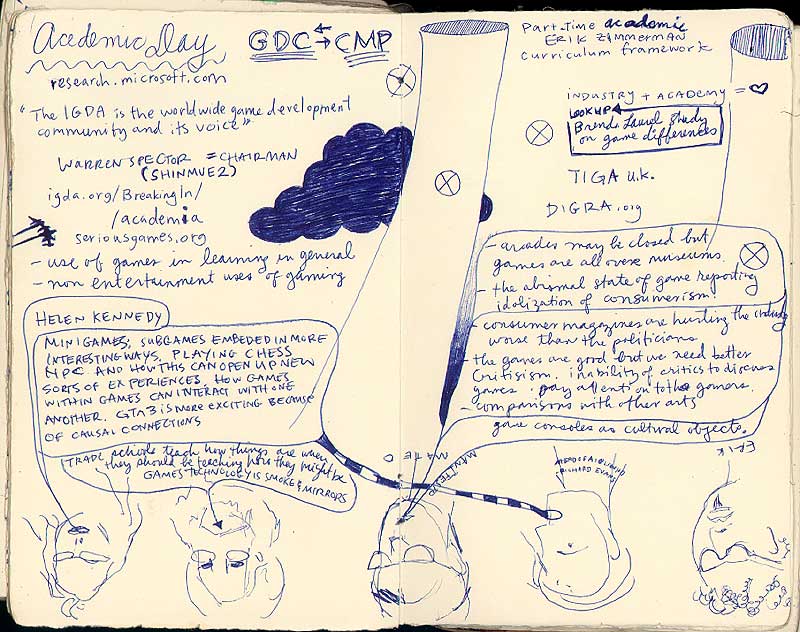 Academic Day
GDC ⇆ CMP
research.microsoft.com
"The IGDA is the worldwide game development
community and its voice"
WARREN SPECTOR = CHAIRMAN
(SHINMUE2)
igda.org/BreakingIn/
/academia
seriousgames.org
- use of games in learning in general
- non entertainment uses of gaming
HELEN KENNEDY
MINIGAMES, SUBGAMES EMBEDED IN MORE
INTERESTING WAYS. PLAYING CHESS
NPC AND HOW THIS CAN OPEN UP NEW
SORTS OF EXPERIENCES. HOW GAMES
WITHIN GAMES CAN INTERACT WITH ONE
ANOTHER. GTA3 IS MORE EXCITING BECAUSE
OF CAUSAL CONNECTIONS
TRADE schools teach how things are when
they should be teaching how they might be
GAMES TECHNOLOGY IS SMOKE & MIRRORS
Part-Time academic
ERIK ZIMMERMAN
curriculum framework
INDUSTRY + ACADEMY = ♡
LOOKUP
Brenda Laurel Study
on game differences
TIGA U.K.
DIGRA.org
- arcades may be closed but
games are all over museums.
- the abismal state of game reporting
idolization of consumerism!
- consumer magazines are hurting the industry
worse than the politicians
- the games are good but we need better
Critisism. inability of critics to discuss
games. pay attention to the gamers.
- comparisons with other arts
game consoles as cultural objects.
RICHARD EVANS
ERIK